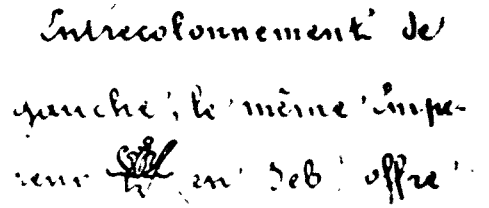 Entrecolonnement de
gauche, le même Empe-
reur en Seb offre